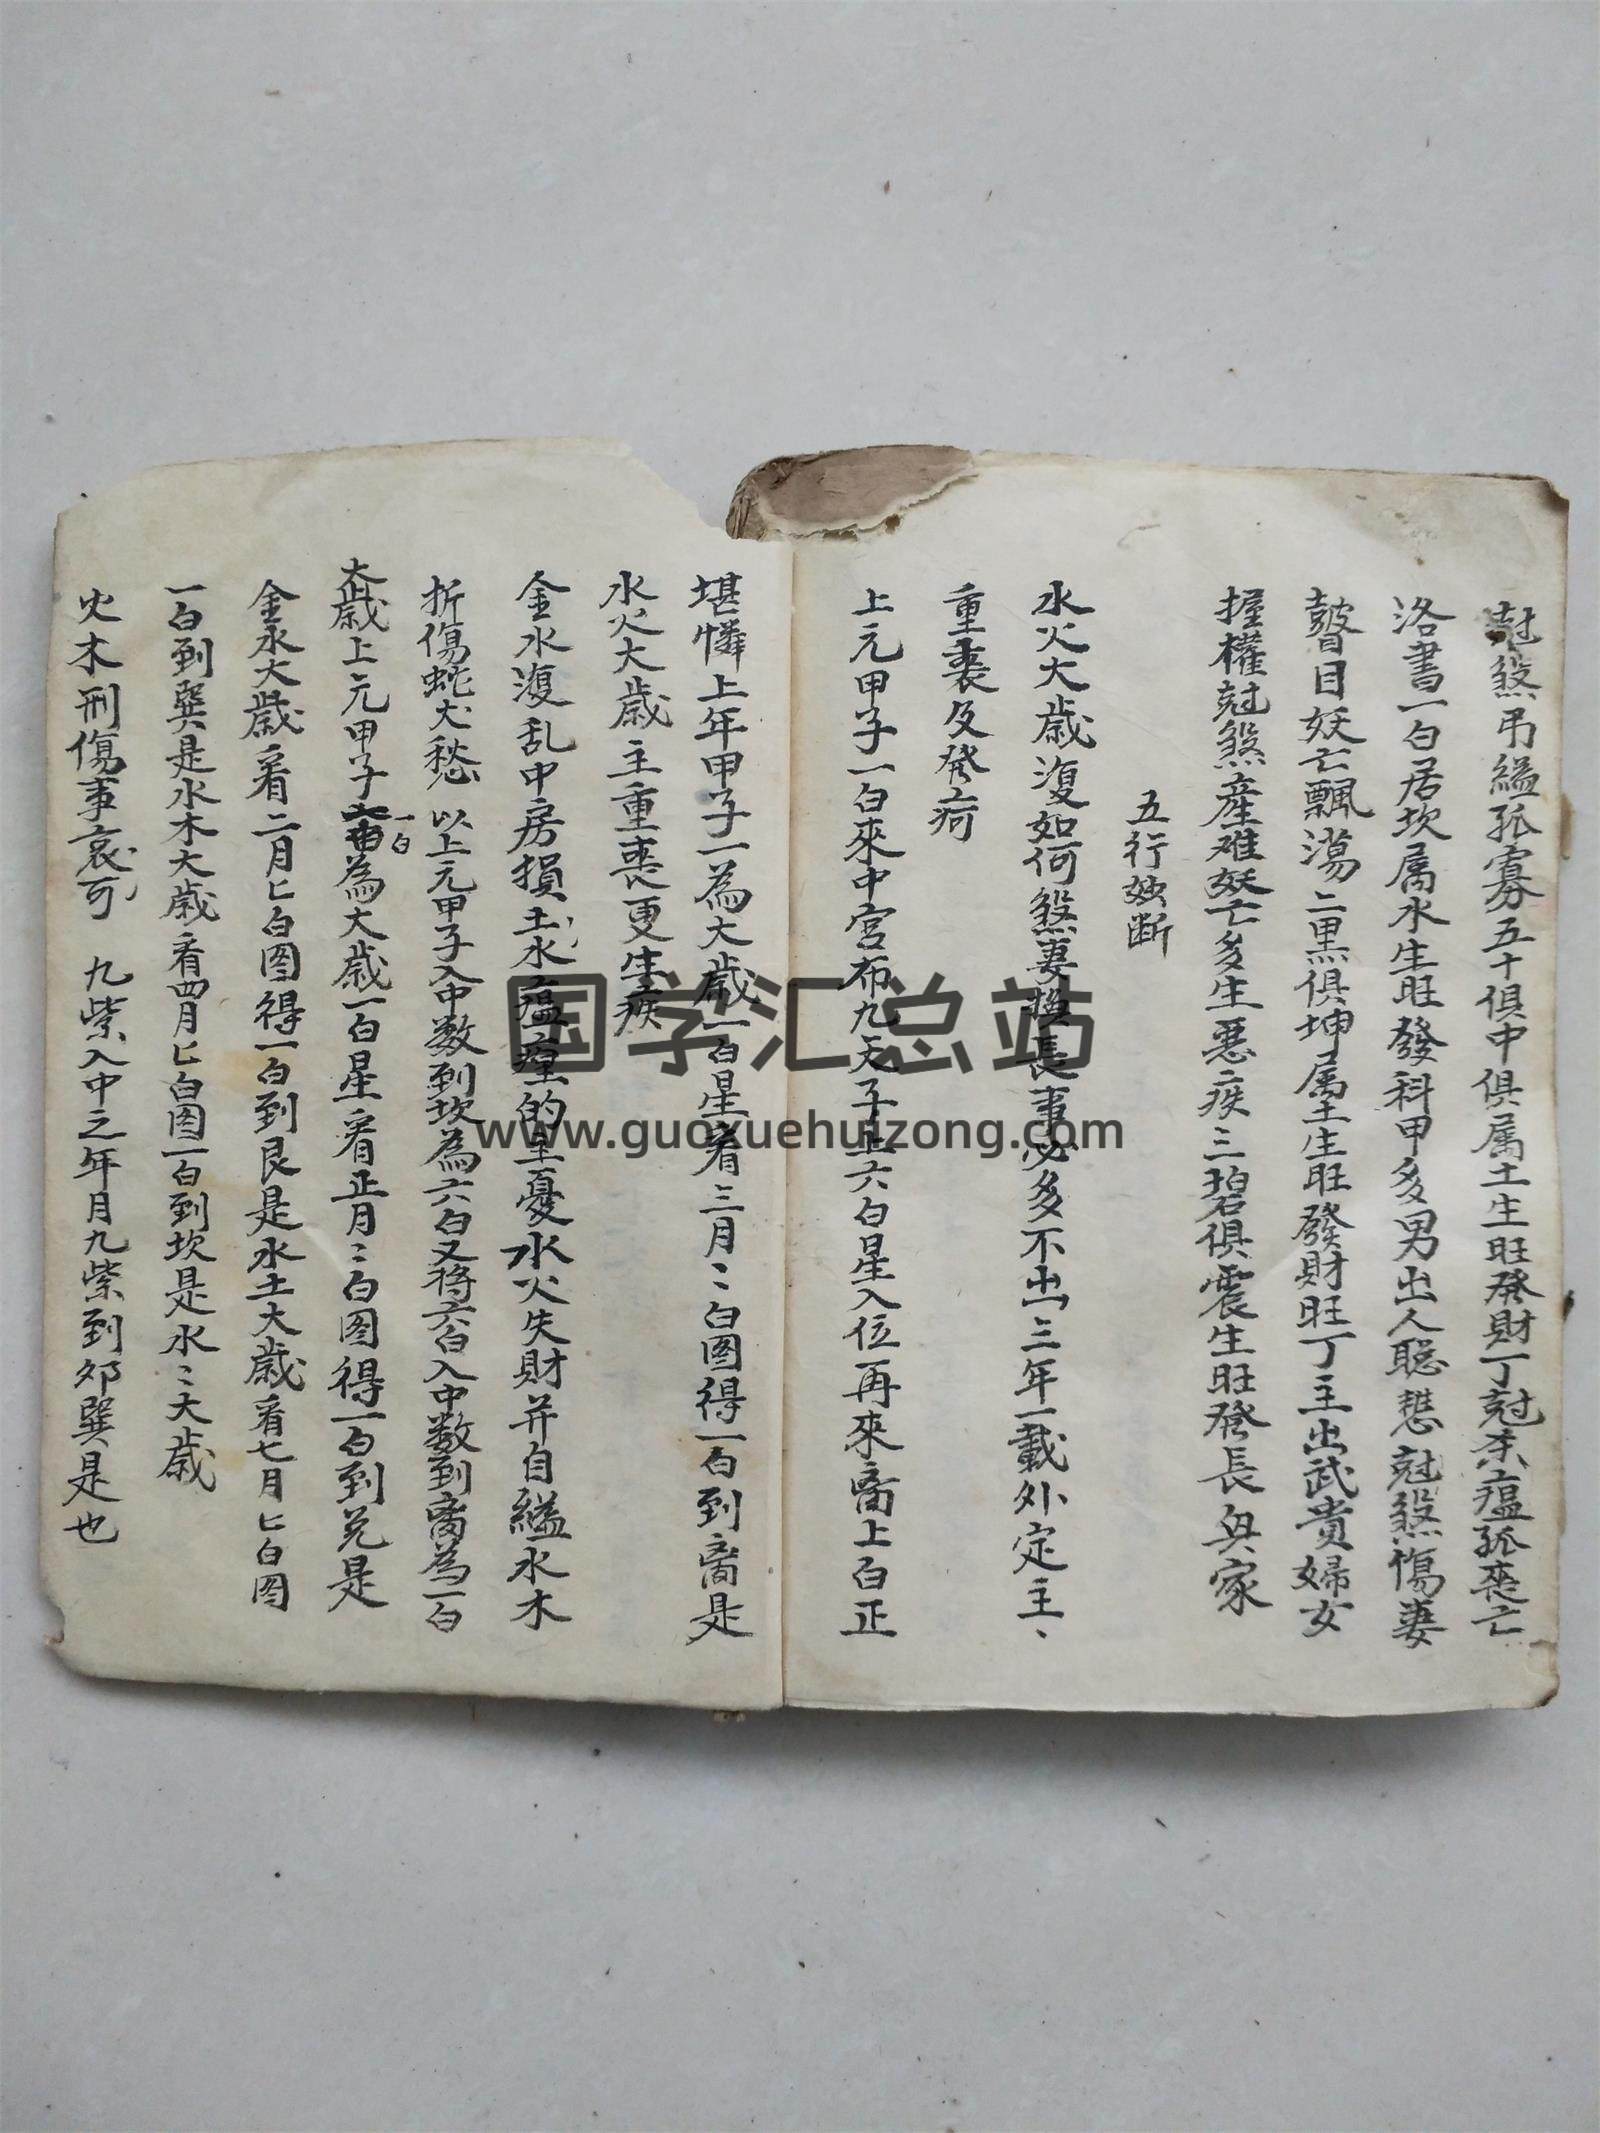 尅煞吊縊孤寡五十俱中俱属土生旺發財丁尅杀瘟孤喪亡
洛書一白居坎属水生旺發科甲多男出人聪慧尅煞傷妻
瞽目妖亡飄蕩二黑俱坤属土生旺發財旺丁主出武貴婦女
握權尅煞產难妖亡多生悪疾三碧俱震生旺發長與家
五行断
水火大歳復如何煞妻換長事必多不出三年一載外定主、
重喪及發疴
上元甲子一白來中宮布九天子上六白星入位再來离上白正
堪憐上年甲子一為大歳一白星看三月三白图得一白到离是
水火大歳主重喪更生疾
金水復乱中房損土水瘟瘟的主憂水火失財并自縊水木
折傷蛇犬愁 以上元甲子入中数到坎為六白又将六白入中数到离為一白
大歳上元甲子一白為大歳一白星看正月二白图得一白到兑是
金水大歳看二月匕白图得一白到艮是水土大歳看七月匕白图
一白到巽是水木大歳看四月匕白图一白到坎是水二大歳
火木刑傷事哀可 九紫入中之年月九紫到夘巽是也
国学汇总站
www.guoxuehuizong.com